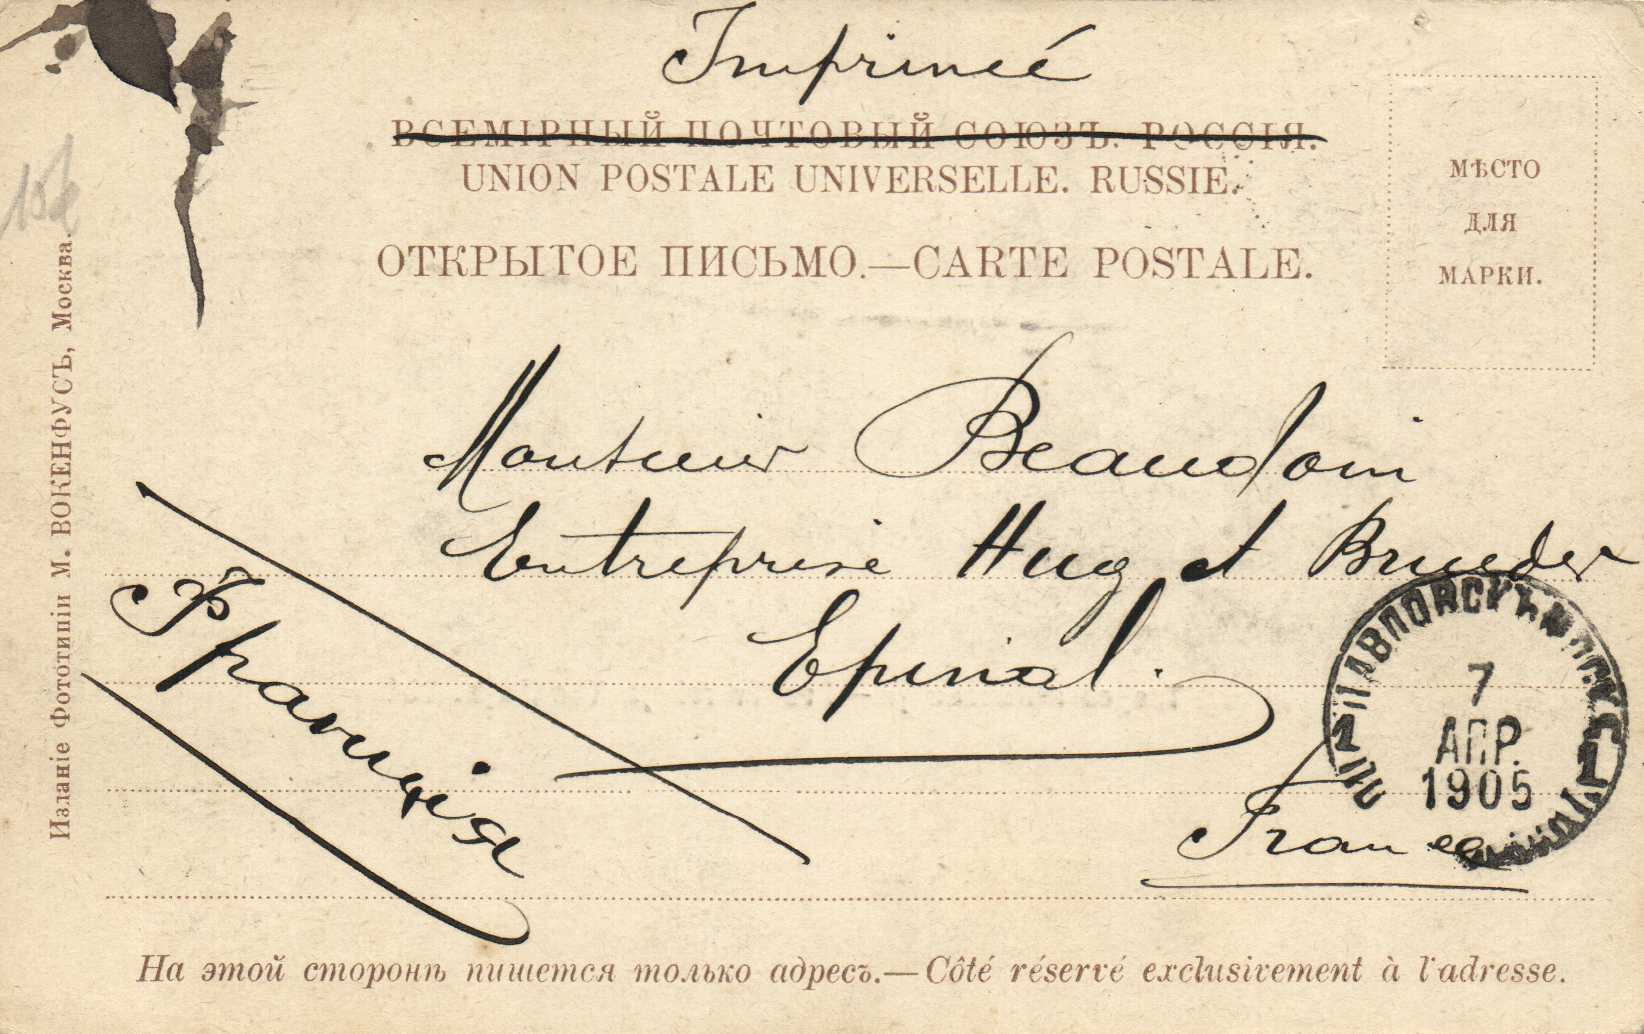 Imprimé
ВСЕМІРНЫЙ ПОЧТОВЫЙ СОЮЗЪ. РОССІЯ.
UNION POSTALE UNIVERSELLE. RUSSIE.
ОТКРЫТОЕ ПИСЬМО.—CARTE POSTALE.
МѢСТО
ДЛЯ
МАРКИ.
Monsieur Beaudoin
Entreprise Hug et Brueder
Epinal.
Франція
France
ПАВЛОВСКЪ
7
АПР.
1905
1
1
Изданіе Фототипіи М. ВОКЕНФУСЪ, Москва.
На этой сторонѣ пишется только адресъ.—Côté réservé exclusivement à l'adresse.